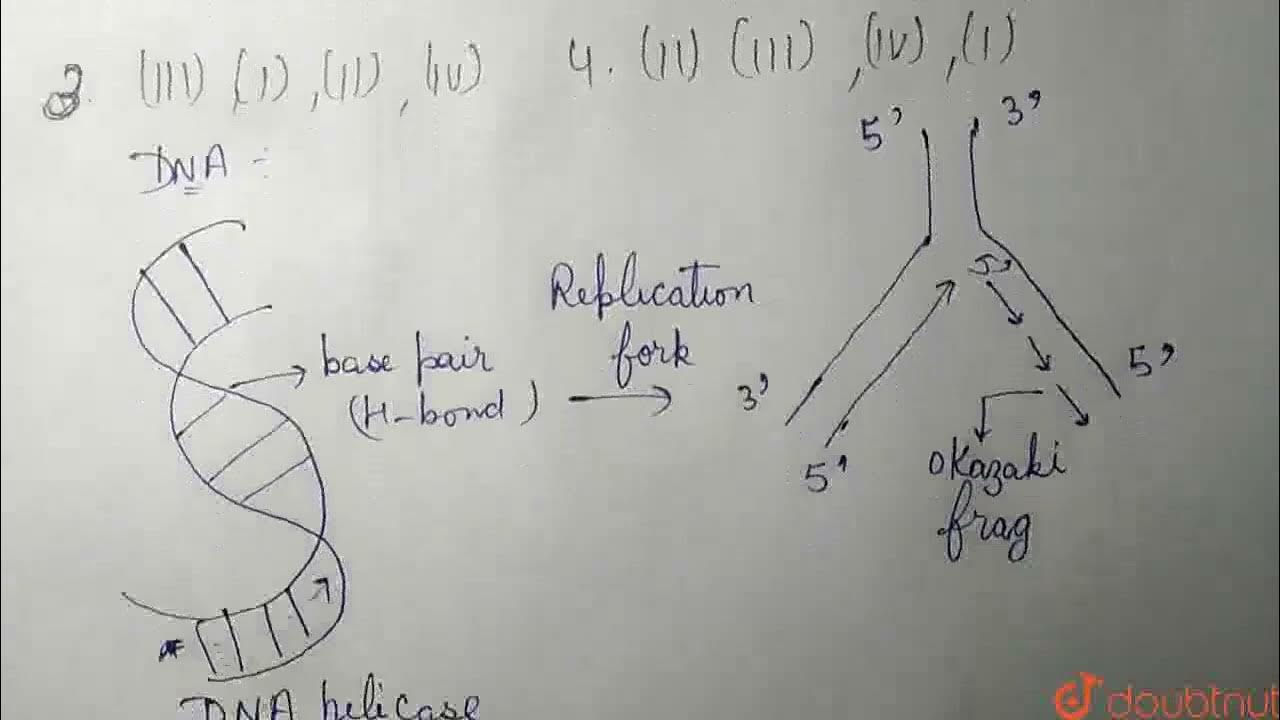 3. (III) (I), (II), (IV)
4. (II) (III), (IV), (I)
DNA :
5' 3'
base pair
(H-bond)
Replication
fork
5'
3' 5'
5'
Okazaki
frag
DNA helicase
doubtnut